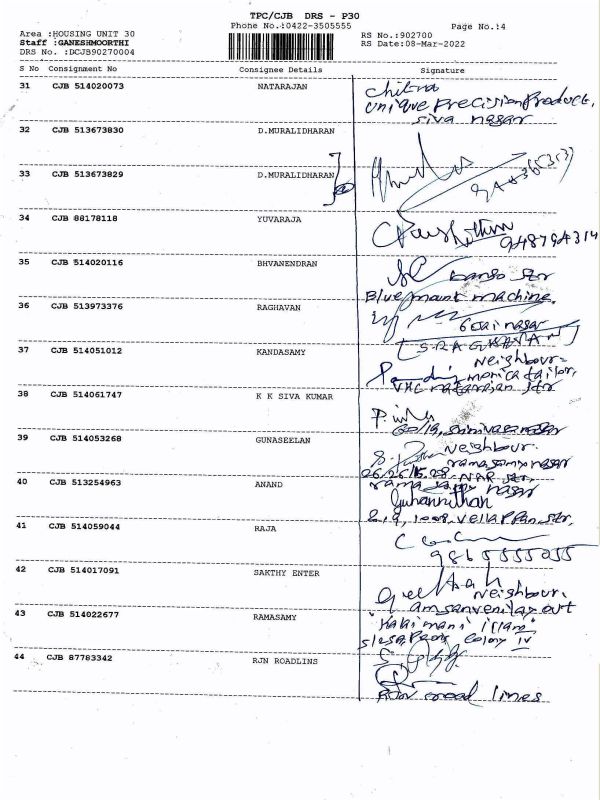 TPC/CJB DRS - P30
Phone No.:0422-3505555
Page No.:4
Area :HOUSING UNIT 30
Staff :GANESHMOORTHI
DRS No. :DCJB90270004
RS No.:902700
RS Date:08-Mar-2022
S No Consignment No Consignee Details Signature
31 CJB 514020073 NATARAJAN
chitra
unique precision Product,
siva nagar
32 CJB 513673830 D.MURALIDHARAN
33 CJB 513673829 D.MURALIDHARAN
34 CJB 88178118 YUVARAJA
948794314
35 CJB 514020116 BHVANENDRAN
str
Blue mount machine,
36 CJB 513973376 RAGHAVAN
nagar
[S.RAGHAVAN]
37 CJB 514051012 KANDASAMY
Neighbour=
monica tailor,
natarajan str
38 CJB 514061747 K K SIVA KUMAR
srinivasa nagar
39 CJB 514053268 GUNASEELAN
Neighbour.
ramasamy nagar
40 CJB 513254963 ANAND
NAR str,
rama samy nagar
str,
41 CJB 514059044 RAJA
9865555055
42 CJB 514017091 SAKTHY ENTER
Geetha
Neighbour.
43 CJB 514022677 RAMASAMY
"Kalaimani illam"
colony IV
44 CJB 87783342 RJN ROADLINS
RJN road lines